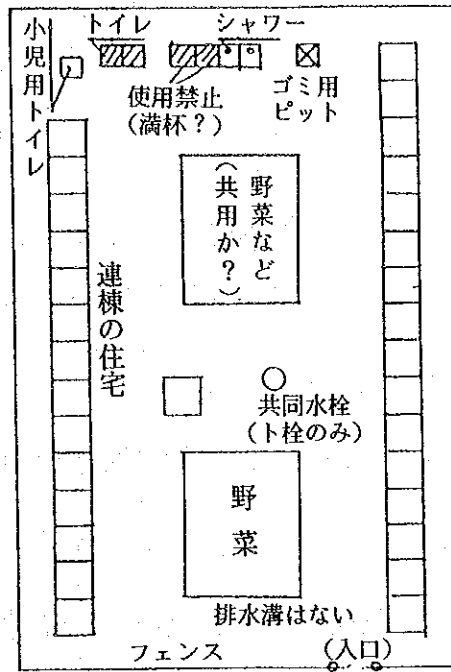 小児用トイレ
トイレ
シャワー
使用禁止
(満杯?)
ゴミ用
ピット
野菜など
(共用か?)
連棟の住宅
共同水栓
(ト栓のみ)
野菜
排水溝はない
フェンス
(入口)